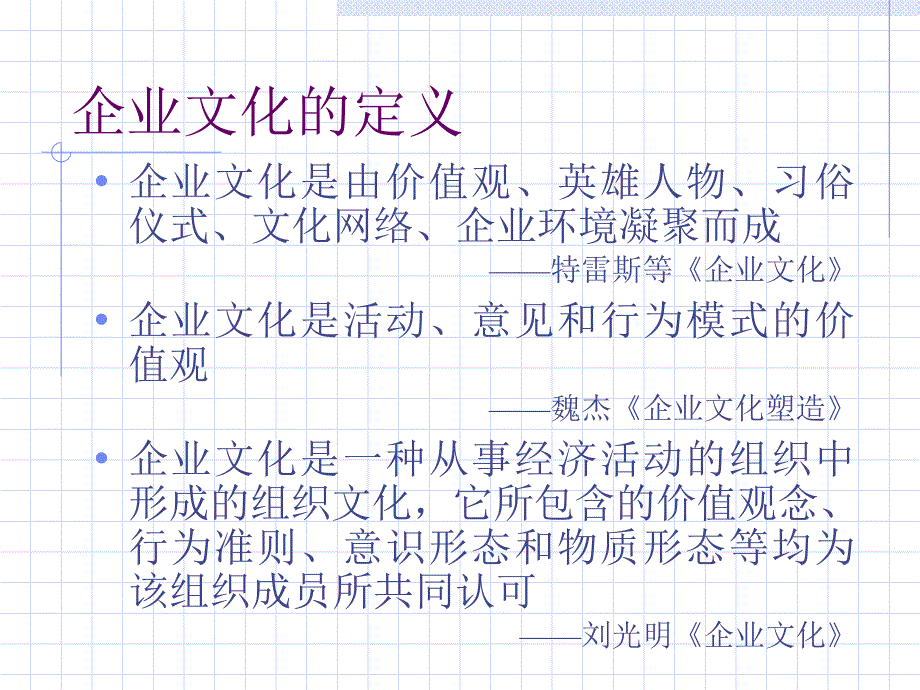 企业文化的定义
• 企业文化是由价值观、英雄人物、习俗
仪式、文化网络、企业环境凝聚而成
——特雷斯等《企业文化》
• 企业文化是活动、意见和行为模式的价
值观
——魏杰《企业文化塑造》
• 企业文化是一种从事经济活动的组织中
形成的组织文化，它所包含的价值观念、
行为准则、意识形态和物质形态等均为
该组织成员所共同认可
——刘光明《企业文化》